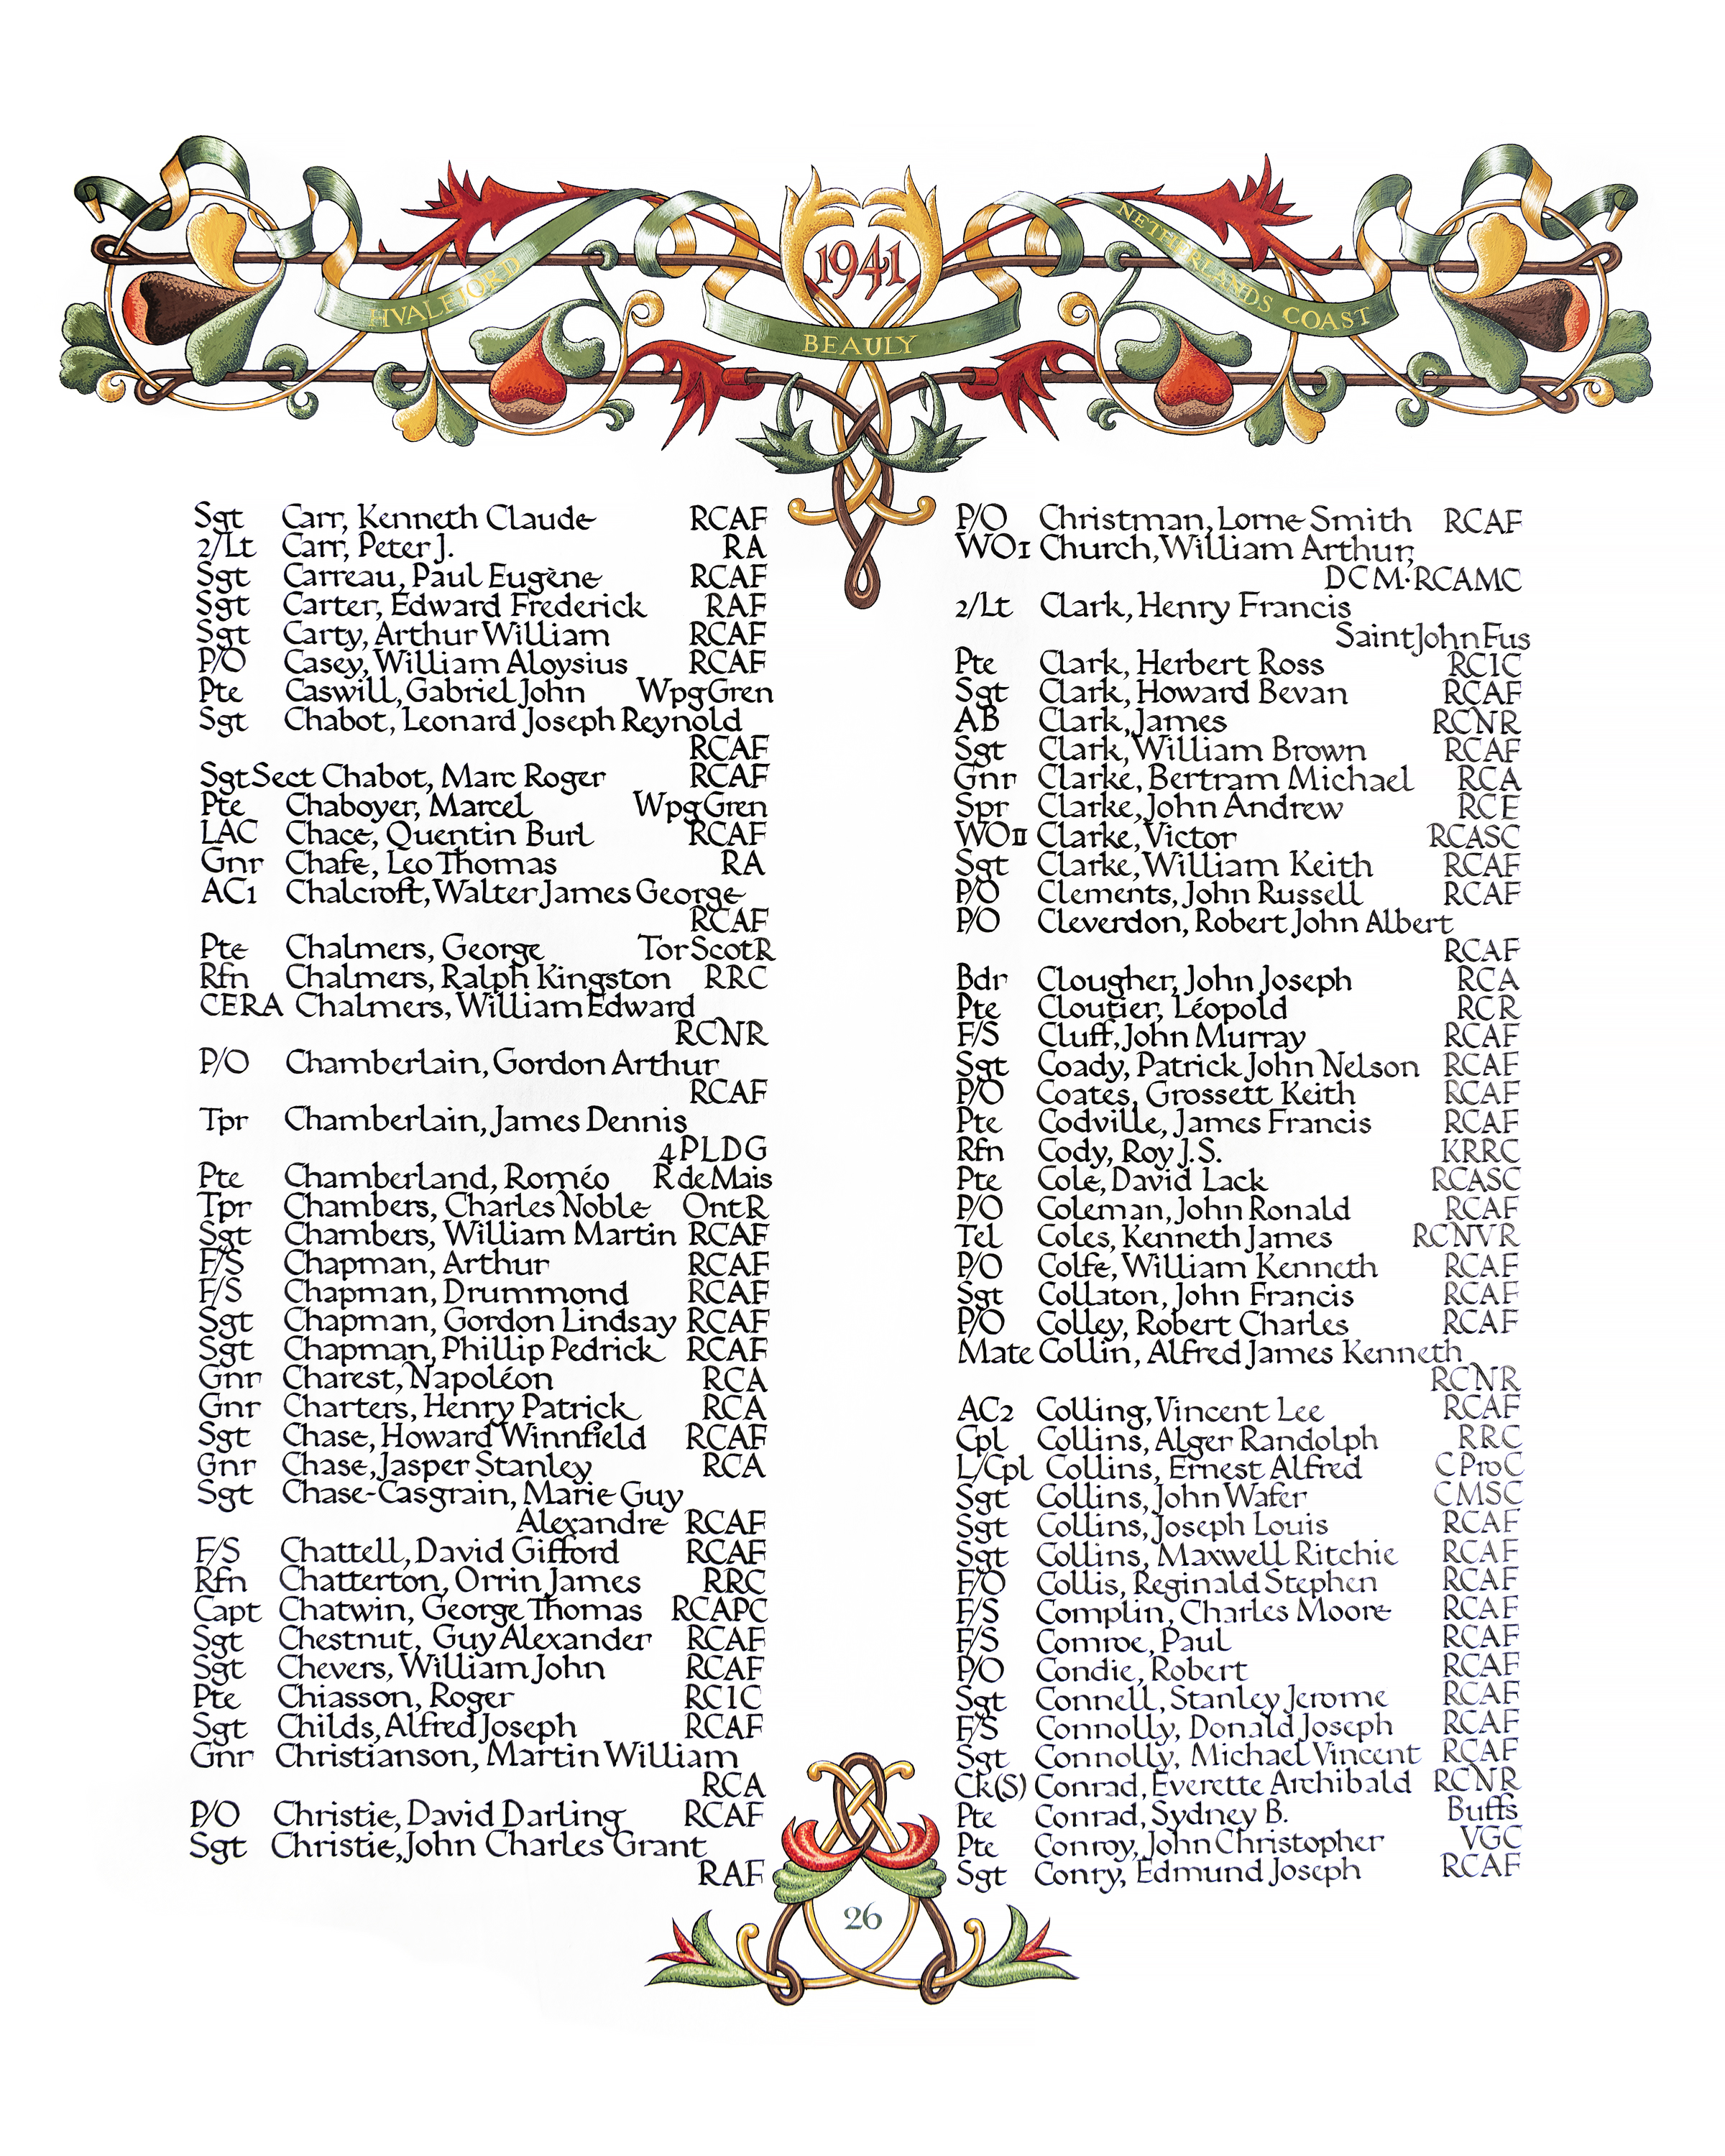 1941
HVALFJORD
BEAULY
NETHERLANDS COAST
Sgt Carr, Kenneth Claude RCAF
2/Lt Carr, Peter J. RA
Sgt Carreau, Paul Eugène RCAF
Sgt Carter, Edward Frederick RAF
Sgt Carty, Arthur William RCAF
P/O Casey, William Aloysius RCAF
Pte Caswill, Gabriel John WpgGren
Sgt Chabot, Leonard Joseph Reynold
RCAF
Sgt Sect Chabot, Marc Roger RCAF
Pte Chaboyer, Marcel WpgGren
LAC Chace, Quentin Burl RCAF
Gnr Chafe, Leo Thomas RA
AC1 Chalcroft, Walter James George
RCAF
Pte Chalmers, George Tor Scot R
Rfn Chalmers, Ralph Kingston RRC
CERA Chalmers, William Edward
RCNR
P/O Chamberlain, Gordon Arthur
RCAF
Tpr Chamberlain, James Dennis
4 PLDG
Pte Chamberland, Roméo R de Mais
Tpr Chambers, Charles Noble Ont R
Sgt Chambers, William Martin RCAF
F/S Chapman, Arthur RCAF
F/S Chapman, Drummond RCAF
Sgt Chapman, Gordon Lindsay RCAF
Sgt Chapman, Phillip Pedrick RCAF
Gnr Charest, Napoléon RCA
Gnr Charters, Henry Patrick RCA
Sgt Chase, Howard Winnfield RCAF
Gnr Chase, Jasper Stanley RCA
Sgt Chase-Casgrain, Marie Guy
Alexandre RCAF
F/S Chattell, David Gifford RCAF
Rfn Chatterton, Orrin James RRC
Capt Chatwin, George Thomas RCAPC
Sgt Chestnut, Guy Alexander RCAF
Sgt Chevers, William John RCAF
Pte Chiasson, Roger RCIC
Sgt Childs, Alfred Joseph RCAF
Gnr Christianson, Martin William
RCA
P/O Christie, David Darling RCAF
Sgt Christie, John Charles Grant
RAF
P/O Christman, Lorne Smith RCAF
WO1 Church, William Arthur,
DCM·RCAMC
2/Lt Clark, Henry Francis
Saint John Fus
Pte Clark, Herbert Ross RCIC
Sgt Clark, Howard Bevan RCAF
AB Clark, James RCNR
Sgt Clark, William Brown RCAF
Gnr Clarke, Bertram Michael RCA
Spr Clarke, John Andrew RCE
WOII Clarke, Victor RCASC
Sgt Clarke, William Keith RCAF
P/O Clements, John Russell RCAF
P/O Cleverdon, Robert John Albert
RCAF
Bdr Clougher, John Joseph RCA
Pte Cloutier, Léopold RCR
F/S Cluff, John Murray RCAF
Sgt Coady, Patrick John Nelson RCAF
P/O Coates, Grossett Keith RCAF
Pte Codville, James Francis RCAF
Rfn Cody, Roy J.S. KRRC
Pte Cole, David Lack RCASC
P/O Coleman, John Ronald RCAF
Tel Coles, Kenneth James RCNVR
P/O Colfe, William Kenneth RCAF
Sgt Collaton, John Francis RCAF
P/O Colley, Robert Charles RCAF
Mate Collin, Alfred James Kenneth
RCNR
AC2 Colling, Vincent Lee RCAF
Cpl Collins, Alger Randolph RRC
L/Cpl Collins, Ernest Alfred C Pro C
Sgt Collins, John Wafer CMSC
Sgt Collins, Joseph Louis RCAF
Sgt Collins, Maxwell Ritchie RCAF
F/O Collis, Reginald Stephen RCAF
F/S Complin, Charles Moore RCAF
F/S Comroe, Paul RCAF
P/O Condie, Robert RCAF
Sgt Connell, Stanley Jerome RCAF
F/S Connolly, Donald Joseph RCAF
Sgt Connolly, Michael Vincent RCAF
Ck(S) Conrad, Everette Archibald RCNR
Pte Conrad, Sydney B. Buffs
Pte Conroy, John Christopher VGC
Sgt Conry, Edmund Joseph RCAF
26